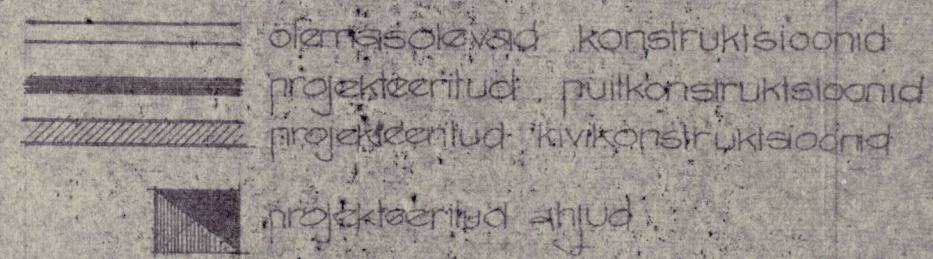 olemasolevad konstruktsioonid
projekteeritud puitkonstruktsioonid
projekteeritud kivikonstruktsioonid
projekteeritud ahjud